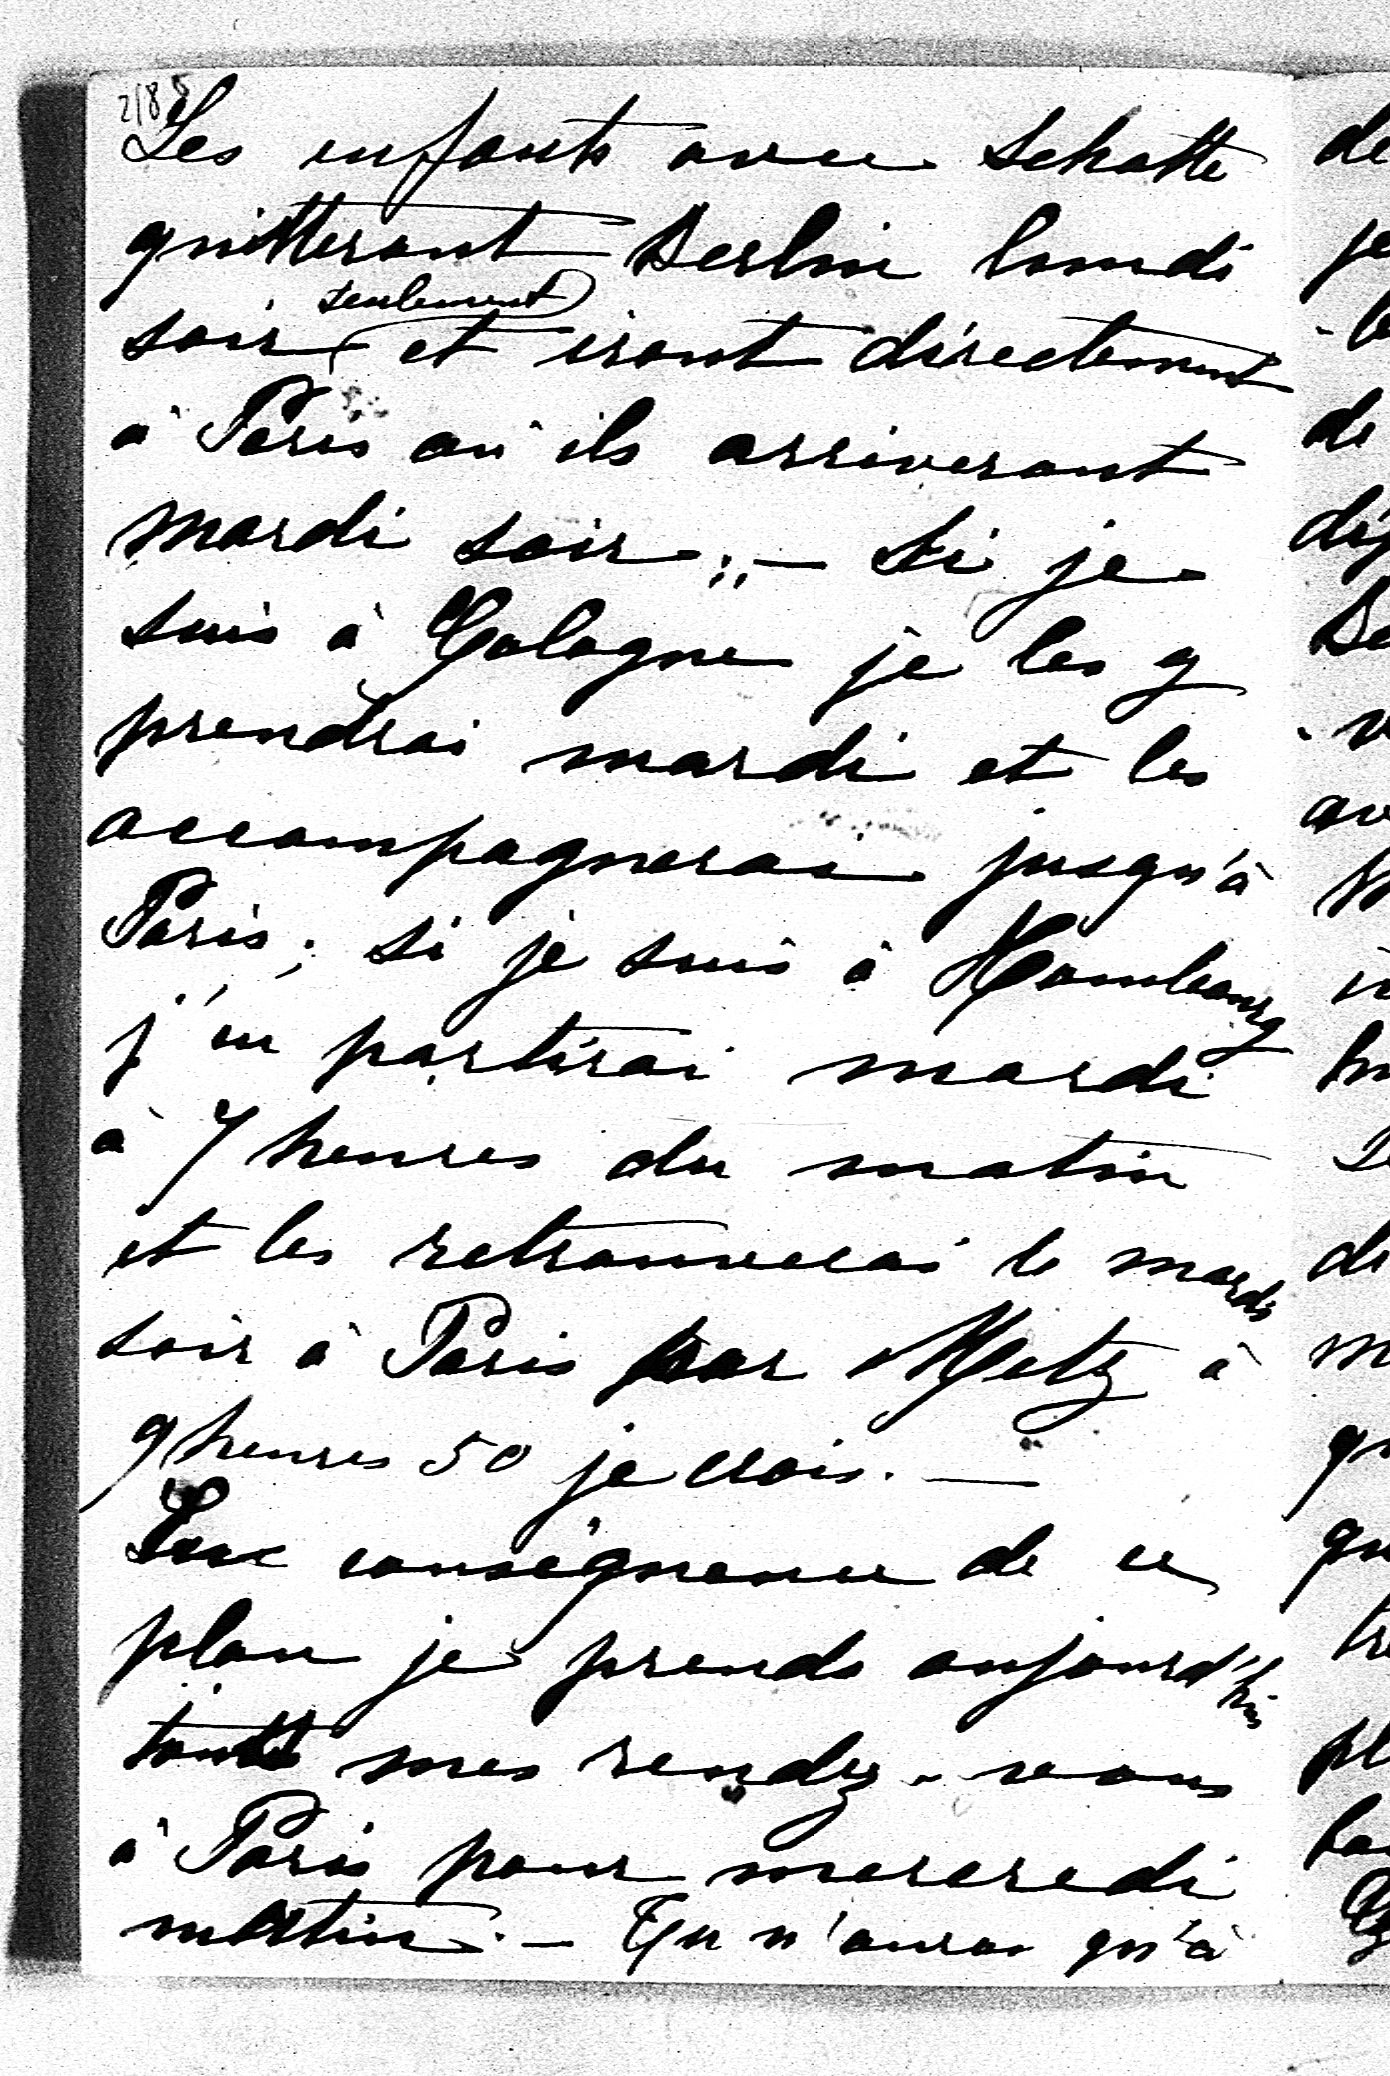 2/88
Les enfants avec Schatte
quitteront Berlin lundi
seulement
soir et iront directement
à Paris où ils arriveront
mardi soir. — Si je
suis à Cologne je les y
prendrai mardi et les
accompagnerai jusqu'à
Paris; si je suis à Hambourg
j'en partirai mardi
à 7 heures du matin
et les retrouverai le mardi
soir à Paris par Metz à
9 heures 50 je crois. —
conséquence de ce
plan je prends aujourd'hui
mes rendez-vous
à Paris pour mercredi
matin. — Tu n'auras qu'à